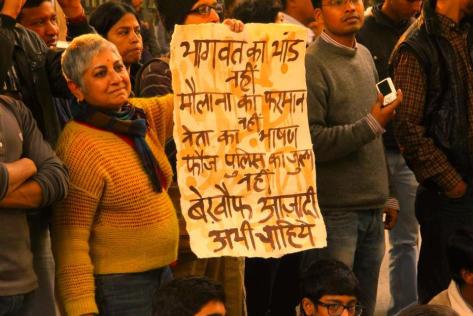 भागवत का भोंड
नहीं
मौलाना का फरमान
नहीं
नेता का भाषण
फौज पुलिस का जुल्म
नहीं
बेखौफ आज़ादी
अभी चाहिये